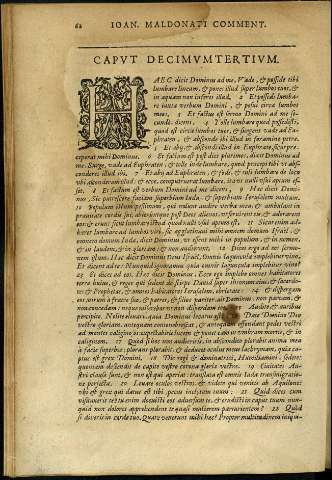 62 IOAN. MALDONATI COMMENT.
CAPVT DECIMVMTERTIVM.
HAEC dicit Dominus ad me, Vade, & posside tibi
lumbare lineum, & pones illud super lumbos tuos, &
in aquam non inferes illud. 2 Et possedi lumba-
re iuxta verbum Domini, & posui circa lumbos
meos, 3 Et factus est sermo Domini ad me se-
cundò, dicens, 4 Tolle lumbare quod possedisti,
quod est circa lumbos tuos, & surgens vade ad Eu-
phratem, & absconde ibi illud in foramine petræ.
5 Et abij, & abscondi illud in Euphrate, sicut præ-
ceperat mihi Dominus. 6 Et factum est post dies plurimos, dixit Dominus ad
me, Surge, vade ad Euphratem, & tolle inde lumbare, quod præcepi tibi vt abs-
conderes illud ibi. 7 Et abij ad Euphratem, & fodi, & tuli lumbare de loco
vbi absconderam illud: & ecce computruerat lumbare,
8 Et factum est verbum Domini ad me dicens, 9 Hæc dicit Domi-
nus, Sic putrescere faciam superbiam Iuda, & superbiam Ierusalem multam,
10 populum istum pessimum, qui nolunt audire verba mea, & ambulant in
prauitate cordis sui; abieruntque post Deos alienos,
11 Sicut enim ad-
hæret lumbare ad lumbos viri, sic agglutinaui mihi omnem domum Israël, &
omnem domum Iuda, dicit Dominus, vt essent mihi in populum, & in nomen,
& in laudem, & in gloriam: & non audierunt. 12 Dices ergo ad eos sermo-
nem istum: Hæc dicit Dominus Deus Israël, Omnis laguncula implebitur vino.
Et dicent ad te: Nunquid ignoramus quia omnis laguncula implebitur vino?
13 Et dices ad eos: Hæc dicit Dominus: Ecce ego implebo omnes habitatores
terræ huius, & reges qui sedent de stirpe Dauid super thronum eius, & sacerdo-
tes, & Prophetas, & omnes habitatores Ierusalem,
14 & dispergam
eos virum à fratre suo, & patres, & filios pariter, ait Dominus: non parcam, &
non concedam: neque miserebor
15 Audite & auribus
percipite. Nolite eleuari, quia Dominus locutus est. 16 Date Domino Deo
vestro gloriam, antequam contenebrescat, & antequam offendant pedes vestri
ad montes caliginosos: expectabitis lucem, & ponet eam in vmbram mortis, & in
caliginem. 17 Quòd si hoc non audieritis, in abscondito plorabit anima mea
à facie superbiæ: plorans plorabit, & deducet oculus meus lacrymam, quia cap-
tus est grex Domini. 18 Dic regi & dominatrici, Humiliamini, sedete:
quoniam descendit de capite vestro corona gloriæ vestræ. 19 Ciuitates Au-
stri clausæ sunt, & non est qui aperiat: translata est omnis Iuda transmigratio-
ne perfecta. 20 Leuate oculos vestros, & videte qui venitis ab Aquilone:
vbi est grex qui datus est tibi, pecus inclytum tuum? 21 Quid dices cum
visitauerit te? tu enim docuisti eos aduersum te, & erudisti in caput tuum: nun-
quid non dolores apprehendent te quasi mulierem parturientem? 22 Quòd
si dixeris in corde tuo, Quare venerunt mihi hæc? Propter multitudinem iniqui-